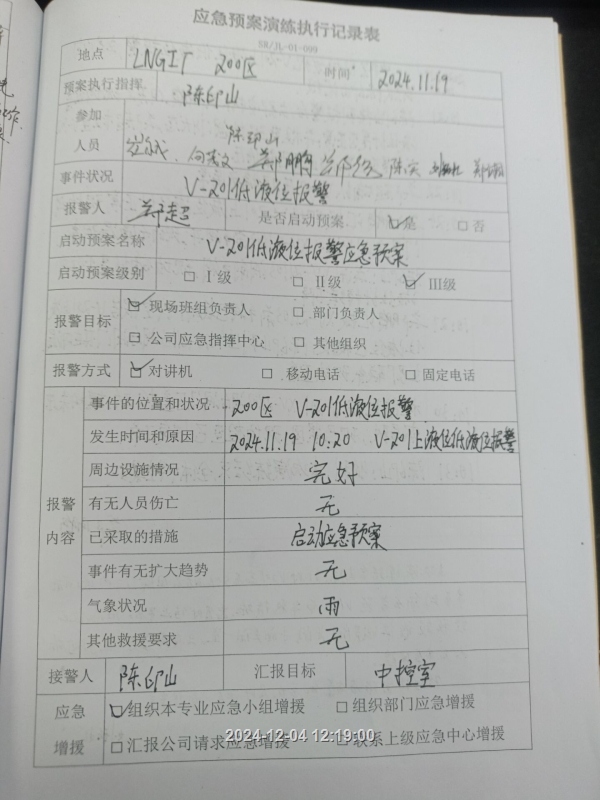 应急预案演练执行记录表
SR/JL-01-099
地点 LNGIT 200区 时间 2024.11.19
预案执行指挥 陈印山
参加人员 陈印山
事件状况 V-201低液位报警
报警人 是否启动预案 ☑是 □否
启动预案名称 V-201低液位报警应急预案
启动预案级别 □ Ⅰ级 □ Ⅱ级 ☑ Ⅲ级
报警目标 ☑ 现场班组负责人 □ 部门负责人
□ 公司应急指挥中心 □ 其他组织
报警方式 ☑ 对讲机 □ 移动电话 □ 固定电话
报警内容
事件的位置和状况 200区 V-201低液位报警
发生时间和原因 2024.11.19 10:20 V-201上液位低液位报警
周边设施情况 完好
有无人员伤亡 无
已采取的措施 启动应急预案
事件有无扩大趋势 无
气象状况 雨
其他救援要求 无
接警人 陈印山 汇报目标 中控室
应急增援 ☑组织本专业应急小组增援 □ 组织部门应急增援
□汇报公司请求应急增援 □联系上级应急中心增援
2024-12-04 12:19:00